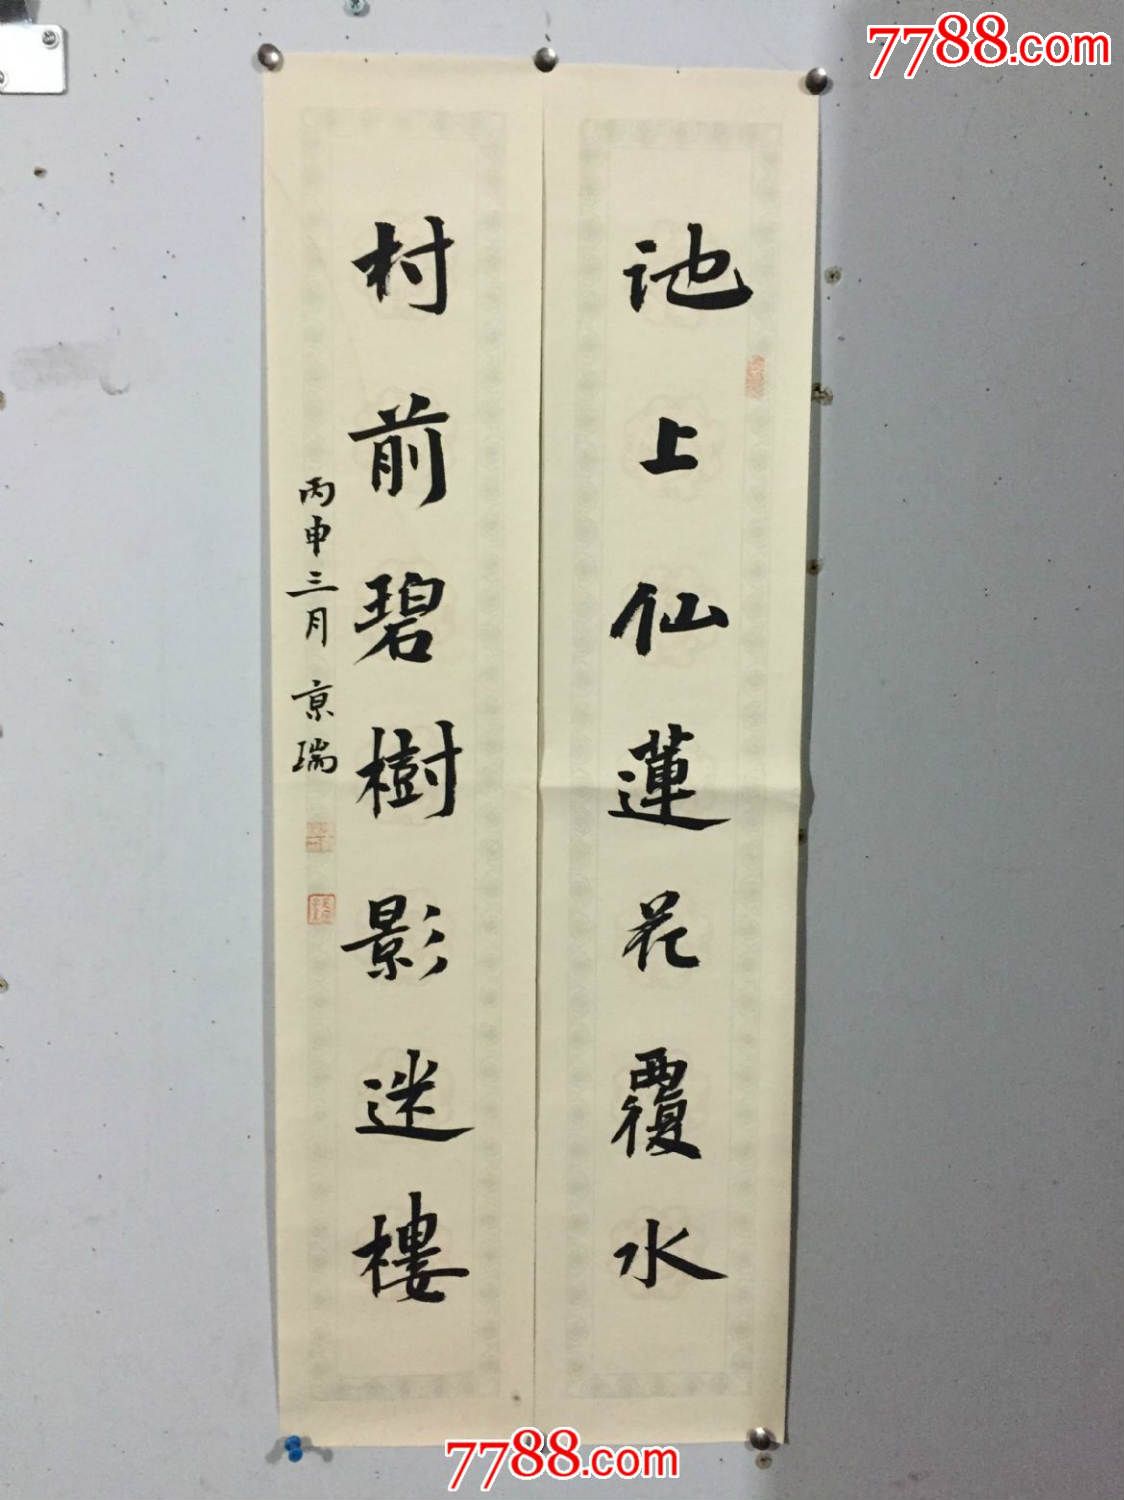 7788.com
池上仙蓮花覆水
村前碧樹影迷樓
丙申三月 京瑞
7788.com